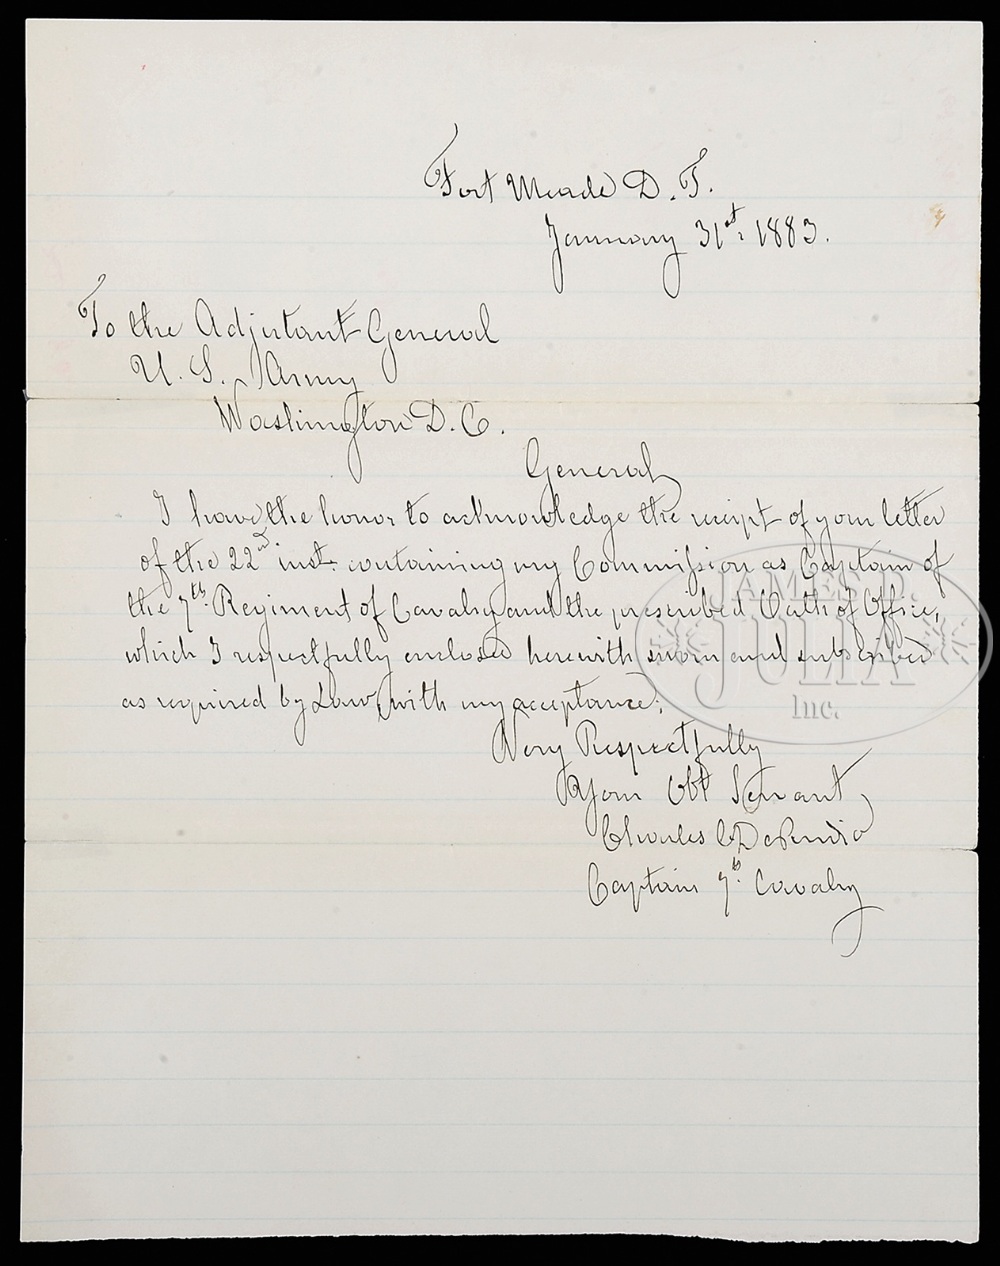 Fort Meade D. T.
January 31st, 1883.
To the Adjutant General
U. S. Army
Washington D. C.
General,
I have the honor to acknowledge the receipt of your letter
of the 22nd inst. containing my Commission as Captain of
the 7th. Regiment of Cavalry and the prescribed Oath of Office,
which I respectfully enclosed herewith sworn and subscribed
as required by Law, with my acceptance;
Very Respectfully
Your Obt Servant,
Charles C DeRudio
Captain 7th. Cavalry
JAMES D.
JULIA
Inc.